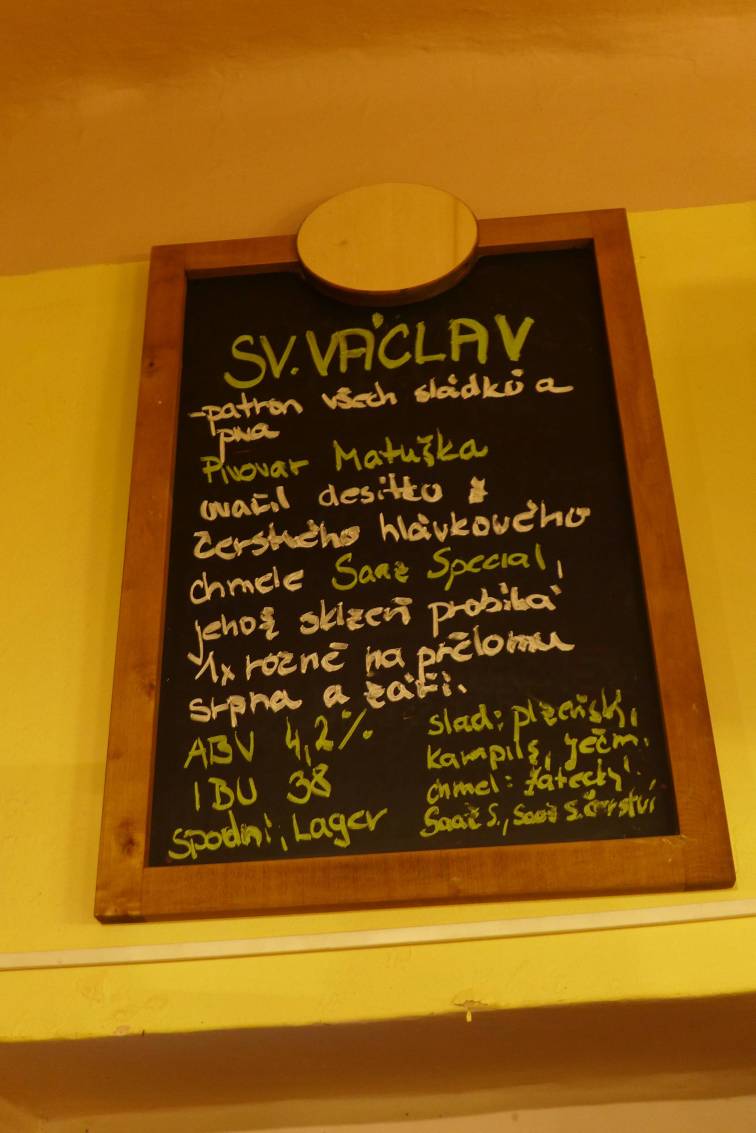 SV. VÁCLAV
-patron všech sládků a
piva
Pivovar Matuška
uvařil desítko z
čerstvého hlávkového
chmele Saaz Special,
jehož sklizeň probíhá
1x ročně na přelomu
srpna a září.
ABV 4,2%
IBU 38
Spodní, Lager
slad: plzeňský,
karapils, ječm.
chmel: žatecký
Saaz S., Saaz S. čerství